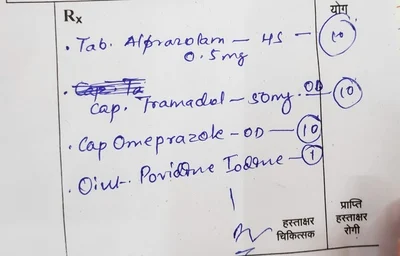 Rx योग
• Tab. Alprazolam — HS — 10
0.5mg
• Cap. Tramadol — 50mg. OD — 10
• Cap Omeprazole - OD — 10
• Oint. Povidone Iodine — 1
हस्ताक्षर चिकित्सक
प्राप्ति हस्ताक्षर रोगी